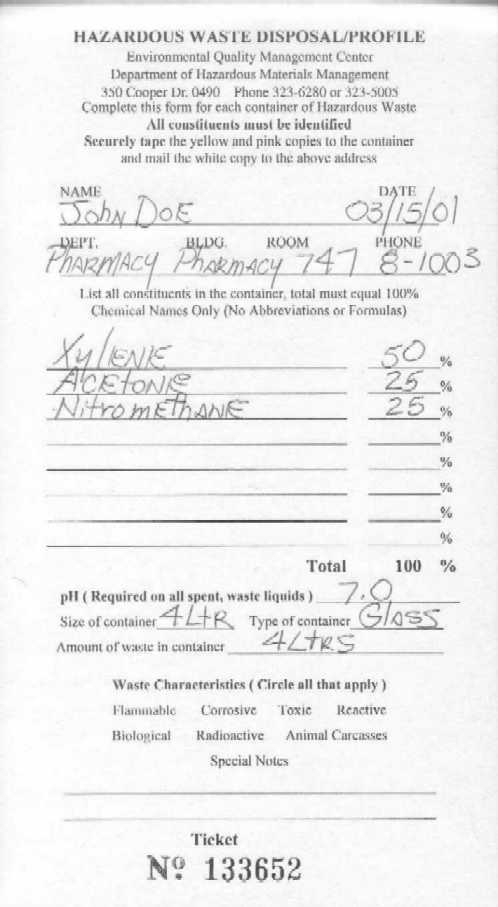 HAZARDOUS WASTE DISPOSAL/PROFILE
Environmental Quality Management Center
Department of Hazardous Materials Management
350 Cooper Dr. 0490 Phone 323-6280 or 323-5005
Complete this form for each container of Hazardous Waste
All constituents must be identified
Securely tape the yellow and pink copies to the container
and mail the white copy to the above address
NAME DATE
John DOE 03/15/01
DEPT. BLDG. ROOM PHONE
PHARMACY PHARMACY 747 8-1003
List all constituents in the container, total must equal 100%
Chemical Names Only (No Abbreviations or Formulas)
XylENE 50 %
ACEtONE 25 %
NitromEthANE 25 %
%
%
%
%
%
Total 100 %
pH ( Required on all spent, waste liquids ) 7.0
Size of container 4 LtR Type of container GlASS
Amount of waste in container 4 LtRS
Waste Characteristics ( Circle all that apply )
Flammable Corrosive Toxic Reactive
Biological Radioactive Animal Carcasses
Special Notes
Ticket
Nº 133652